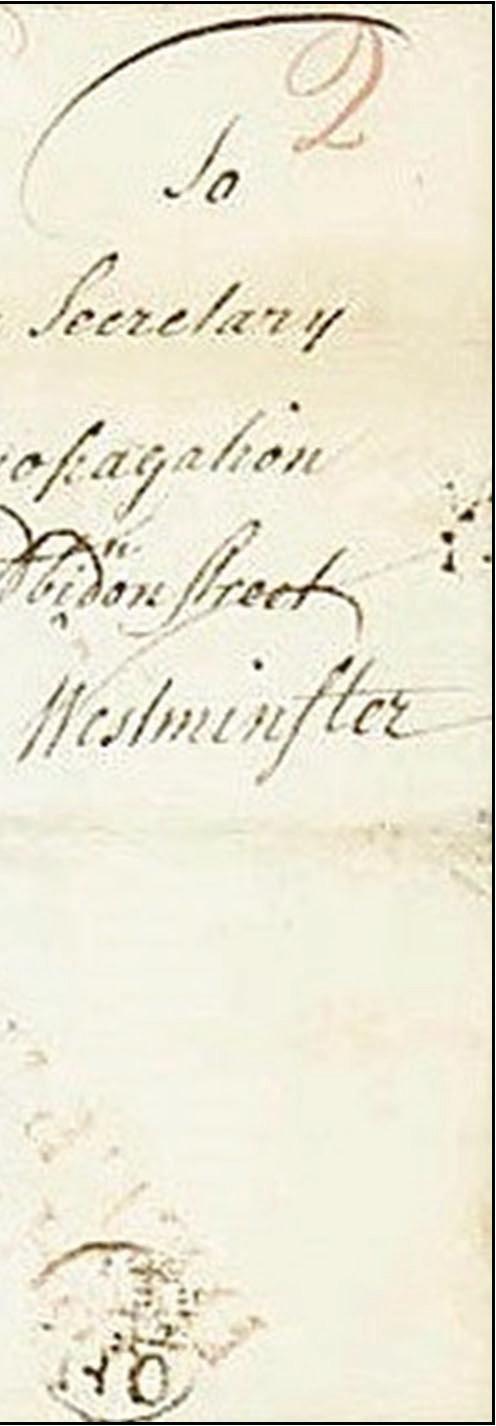 2
To
Secretary
opagation
Abidon Street
Westminster